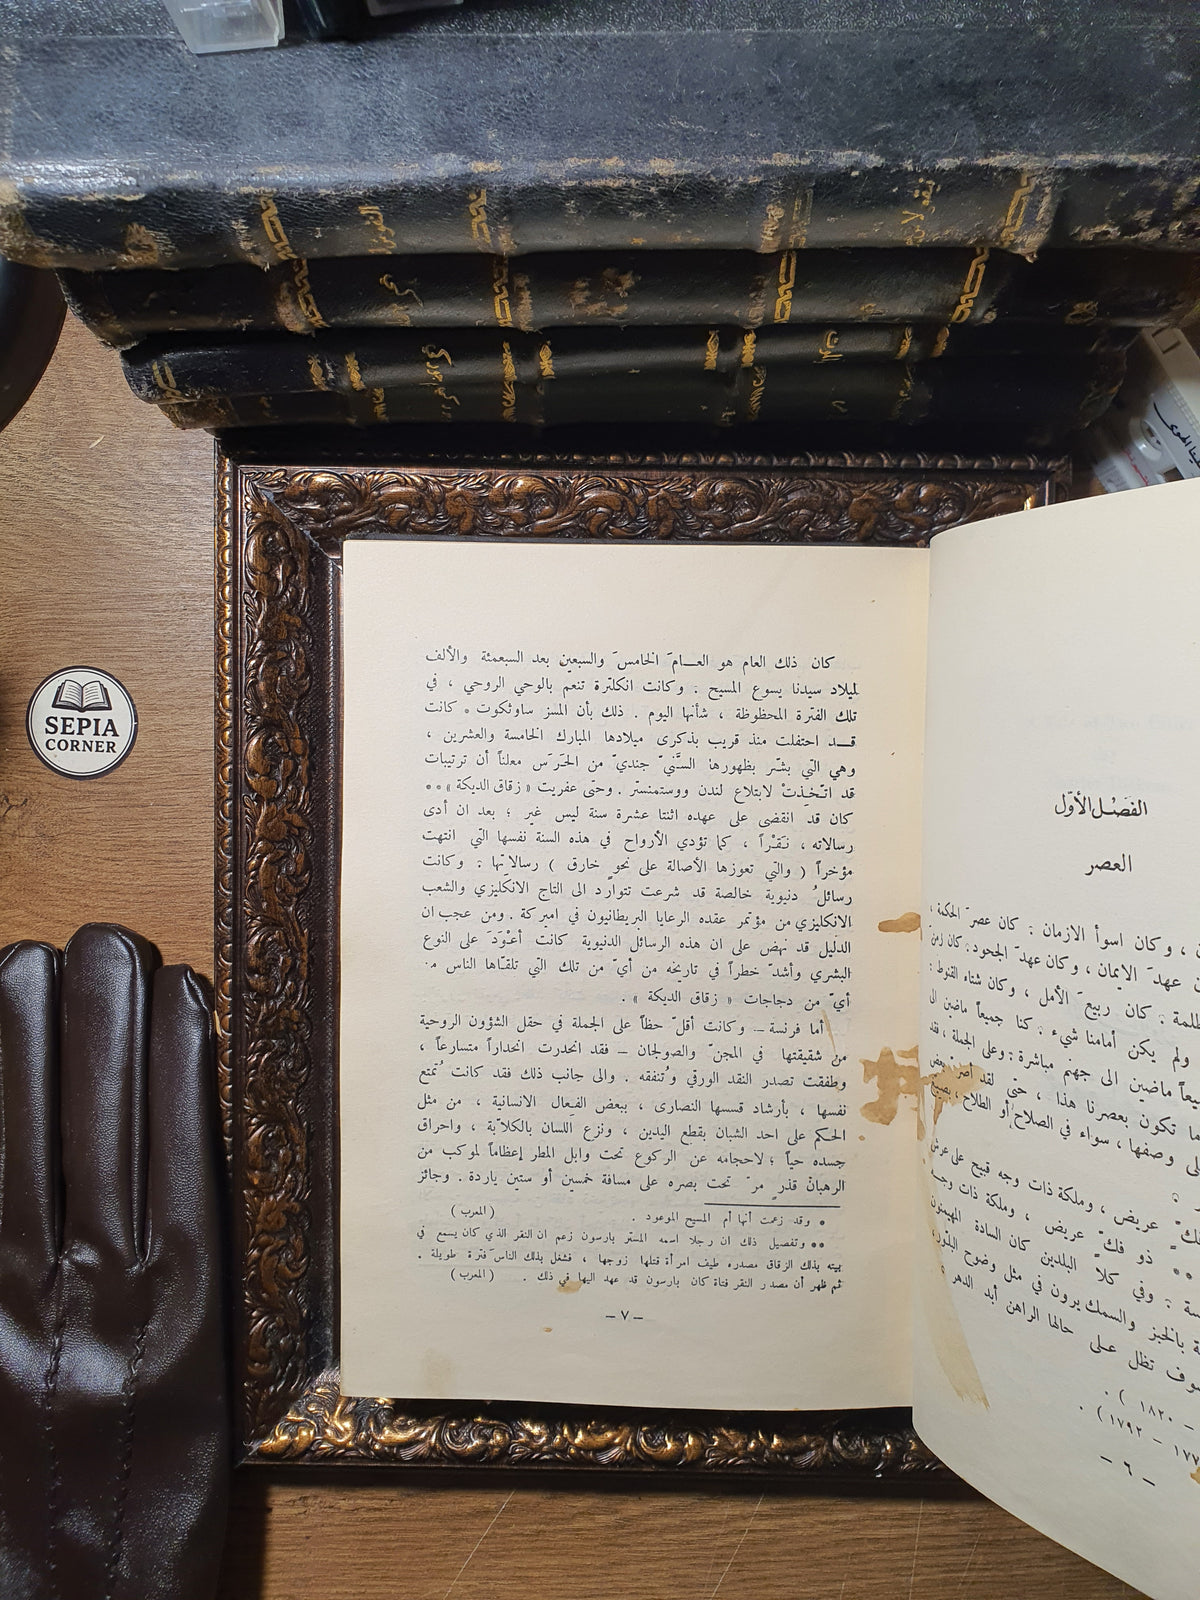 SEPIA
CORNER
كان ذلك العام هو العـــامَ الخامسَ والسبعين بعد السبعمئة والألف
لميلاد سيدنا يسوع المسيح . وكانت انكلترة تنعم بالوحي الروحي ، في
تلك الفترة المحظوظة ، شأنها اليوم . ذلك بأن المسز ساوثكوت * كانت
قــد احتفلت منذ قريب بذكرى ميلادها المبارك الخامسة والعشرين ،
وهي التي بشّر بظهورها السَّنيّ جنديّ من الحَرَس معلناً أن ترتيبات
قد اتّخِذتْ لابتلاع لندن ووستمنستر . وحتى عفريت « زقاق الديكة » **
كان قد انقضى على عهده اثنتا عشرة سنة ليس غير ؛ بعد ان أدى
رسالاته ، نَقْراً ، كما تؤدي الأرواح في هذه السنة نفسها التي انتهت
مؤخراً ( والتي تعوزها الأصالة على نحوٍ خارق ) رسالاتها . وكانت
رسائلُ دنيوية خالصة قد شرعت تتوارد الى التاج الانكليزي والشعب
الانكليزي من مؤتمر عقده الرعايا البريطانيون في اميركة . ومن عجب ان
الدليل قد نهض على ان هذه الرسائل الدنيوية كانت أعْوَدَ على النوع
البشري وأشدّ خطراً في تاريخه من أيّ من تلك التي تلقّاها الناس من
أيّ من دجاجات « زقاق الديكة » .
أما فرنسة – وكانت أقلّ حظاً على الجملة في حقل الشؤون الروحية
من شقيقتها في المجنّ والصولجان – فقد انحدرت انحداراً متسارعاً ،
وطفقت تصدر النقد الورقي وتُنفقه . والى جانب ذلك فقد كانت تُمتع
نفسها ، بأرشاد قسسها النصارى ، ببعض الفعال الانسانية ، من مثل
الحكم على احد الشبان بقطع اليدين ، ونزع اللسان بالكلاّبة ، واحراق
جسده حياً ؛ لاحجامه عن الركوع تحت وابل المطر إعظاماً لموكب من
الرهبان قذرٍ مرّ تحت بصره على مسافة خمسين أو ستين ياردة . وجائز
* وقد زعمت أنها أم المسيح الموعود . ( المعرب )
** وتفصيل ذلك ان رجلا اسمه المستر بارسون زعم ان النقر الذي كان يسمع في
بيته بذلك الزقاق مصدره طيف امرأة قتلها زوجها ، فشغل بذلك الناس فترة طويلة .
ثم ظهر أن مصدر النقر فتاة كان بارسون قد عهد اليها في ذلك . ( المعرب )
– ٧ –
الفَصْل الأوّل
العصر
، وكان اسوأ الازمان . كان عصرَ الحكمة ،
عهدَ الايمان ، وكان عهدَ الجحود . كان زمنَ
كان ربيعَ الأمل ، وكان شتاء القنوط .
ولم يكن أمامنا شيء . كنا جميعاً ماضين الى
ماضين الى جهنم مباشرة . وعلى الجملة ، فقد
تكون بعصرنا هذا ، حتى لقد اصرّ بعض
وصفها ، سواء في الصلاح أو الطلاح ،
عريض ، وملكة ذات وجه قبيح على عرش
** ذو فكّ عريض ، وملكة ذات وجه
وفي كلا البلدين كان السادة المهيمنون
بالخبز والسمك يرون في مثل وضوح البلّور ،
سوف تظل على حالها الراهن أبد الدهر .
– ١٨٢٠ ) .
– ١٧٩٢ ) .
– ٦ –